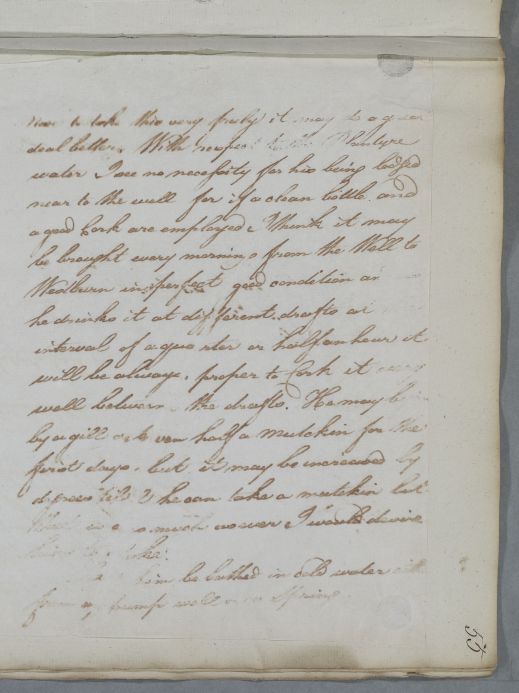 to take this very freely it may do a great
deal better. With respect to the Phintyre
water I see no necessity for his being lodged
near to the well for if a clean bottle and
a good Cork are employed I think it may
be brought every morning from the Well to
Woodburn in perfect good condition as
he drinks it at different drafts at
interval of a quarter or half an hour it
will be always proper to Cork it very
well between the drafts. He may be
by a gill or even half a mutchkin for the
first days, but it may be increased by
degrees till he can take a mutchkin but
as much as ever I would desire
him to take.
him be bathed in cold water
from pump well or Spring.
55